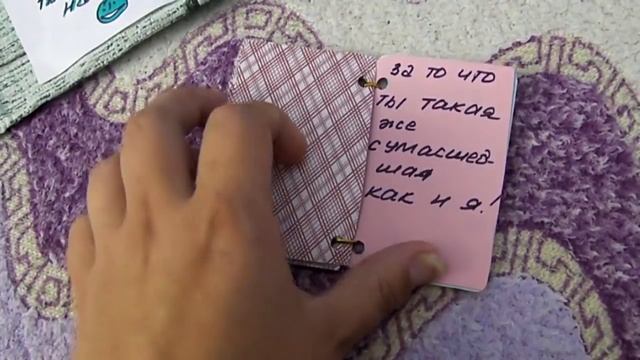 за то что
ты такая
же
сумасшед
шая
как и я!